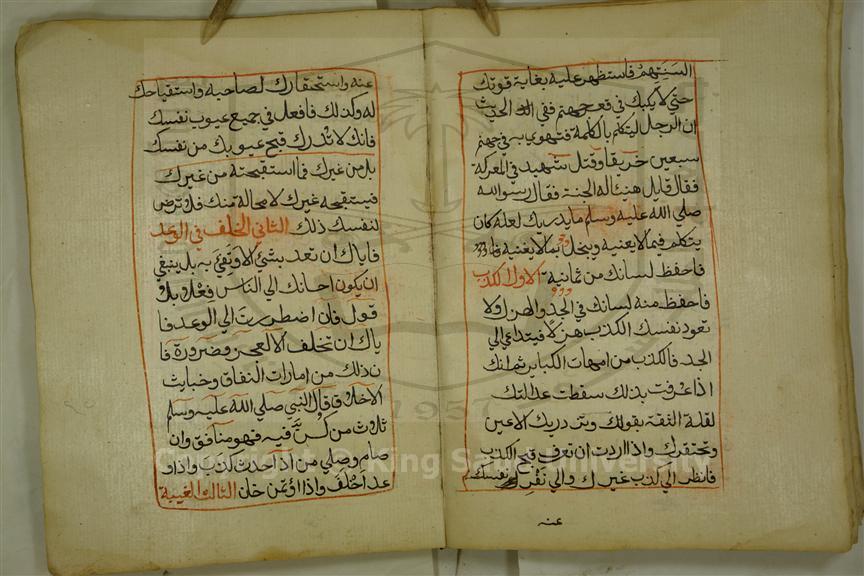 السنتهم فاستظهر عليه بغاية قوتك
حتى لا يكبك في قعر جهنم ففي الحديث
ان الرجل ليتكلم بالكلمة فتهوي به في جهنم
سبعين خريفا وقتل شهيد في المعركة
فقال قايل هنيئا له الجنة فقال رسوالله
صلي الله عليه وسلم ما يدريك لعله كان
يتكلم فيما لا يعنيه ويبخل بما لا يغنيه
فاحفظ لسانك من ثمانية الاول الكذب
فاحفظ منه لسانك في الجد والهزل ولا
تعود نفسك الكذب هزلا فيتداعي الي
الجد فالكذب من امهات الكباير ثم انك
اذا عرفت بذلك سقطت عدالتك
لقلة الثقة بقولك وتزدريك الاعين
وتحتقرك واذا اردت ان تعرف قبح الكذب
فانظر الي كذب غيرك والي نفرة نفسك
عنه
عنه واستحقارك لصاحبه واستقباحك
له وكذلك فافعل في جميع عيوب نفسك
فانك لا تدرك قبح عيوبك من نفسك
بل من غيرك فما استقبحته من غيرك
فيستقبحه غيرك لا محالة منك فلا ترض
لنفسك ذلك الثاني الخلف في الوعد
فاياك ان تعد بشئ الا وتفي به بل ينبغي
ان يكون احسانك الي الناس فعلا بلا
قول فان اضطررت الي الوعد فا
ياك ان تخلف الا لعجز وضرورة فا
ن ذلك من امارات النفاق وخبايث
الاخلاق قال النبي صلي الله عليه وسلم
ثلاوث من كن فيه فهو منافق وان
صام وصلي من اذا حدث كذب واذا و
عد اخلف واذا اؤتمن خان الثالث الغيبة
Copyright © King Saud University
1957